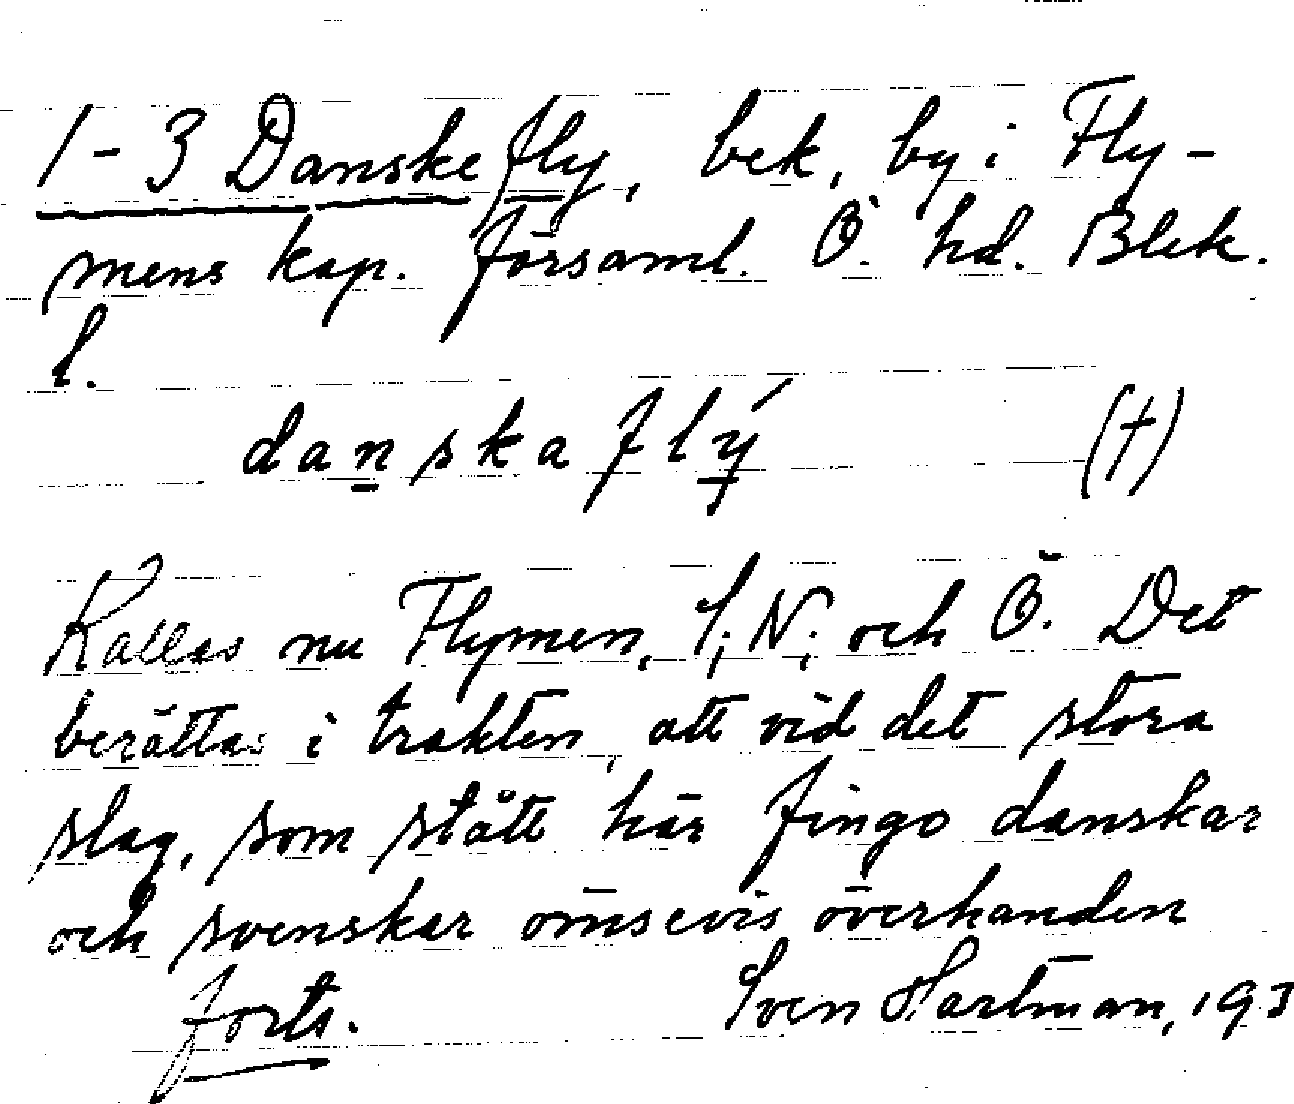 1-3 Danskefly, bek, by i Fly-
mens kap. församl. Ö. hd. Blek.
l.
danskaflý (†)
Kallas nu Flymen, S; N; och Ö. Det
berättas i trakten, att vid det stora
slag, som stått här fingo danskar
och svenskar ömsevis överhanden
forts. Sven Hartman, 193